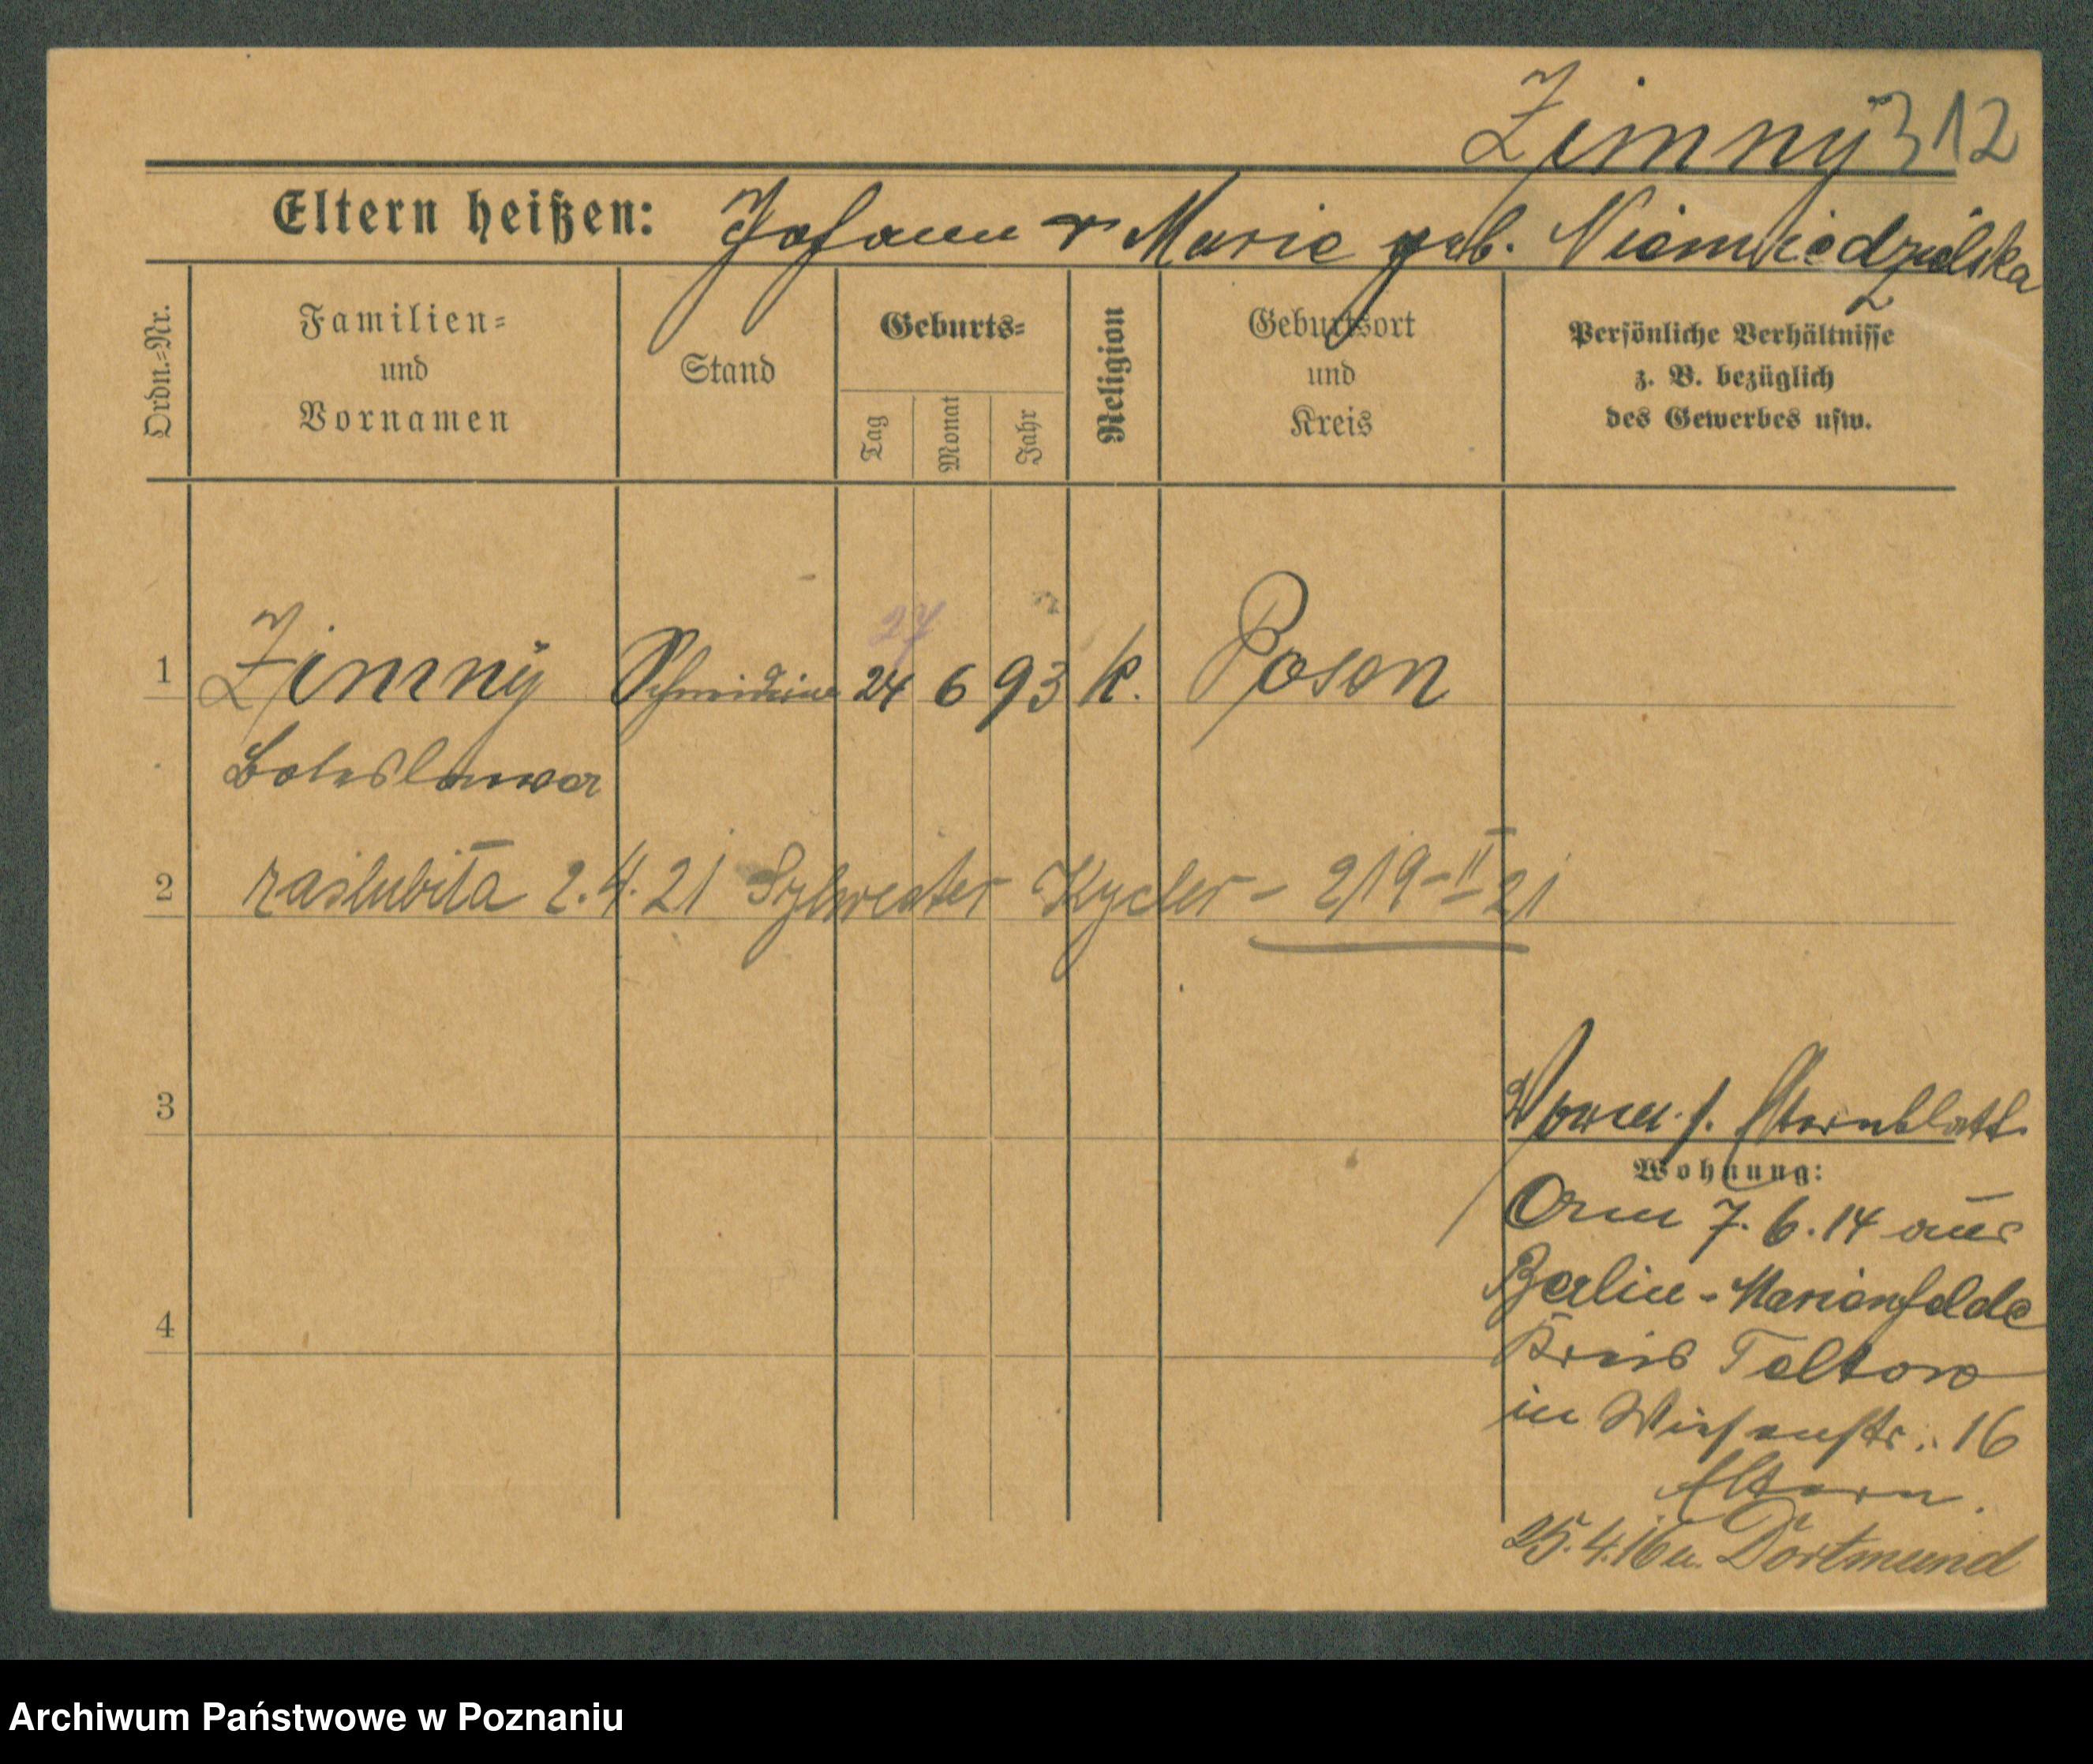 Zimny 312
Eltern heißen: Johann u Marie geb. Niemiedzielska
Ordn.=Nr.
Familien=
und
Vornamen
Stand
Geburts=
Tag
Monat
Jahr
Religion
Geburtsort
und
Kreis
Persönliche Verhältnisse
z. B. bezüglich
des Gewerbes usw.
27
1 Zimny Schneiderin 24 6 93 k. Posen
Boleslawa
2 zaślubiła 2.4.21 Sylwester Kycler - 219-II 21
3 s. Elternblatt
Wohnung:
Am 7.6.14 aus
Berlin-Marienfelde
4 Kreis Teltow
in Wiesenstr. 16
Eltern.
25.4.16 n. Dortmund
Archiwum Państwowe w Poznaniu